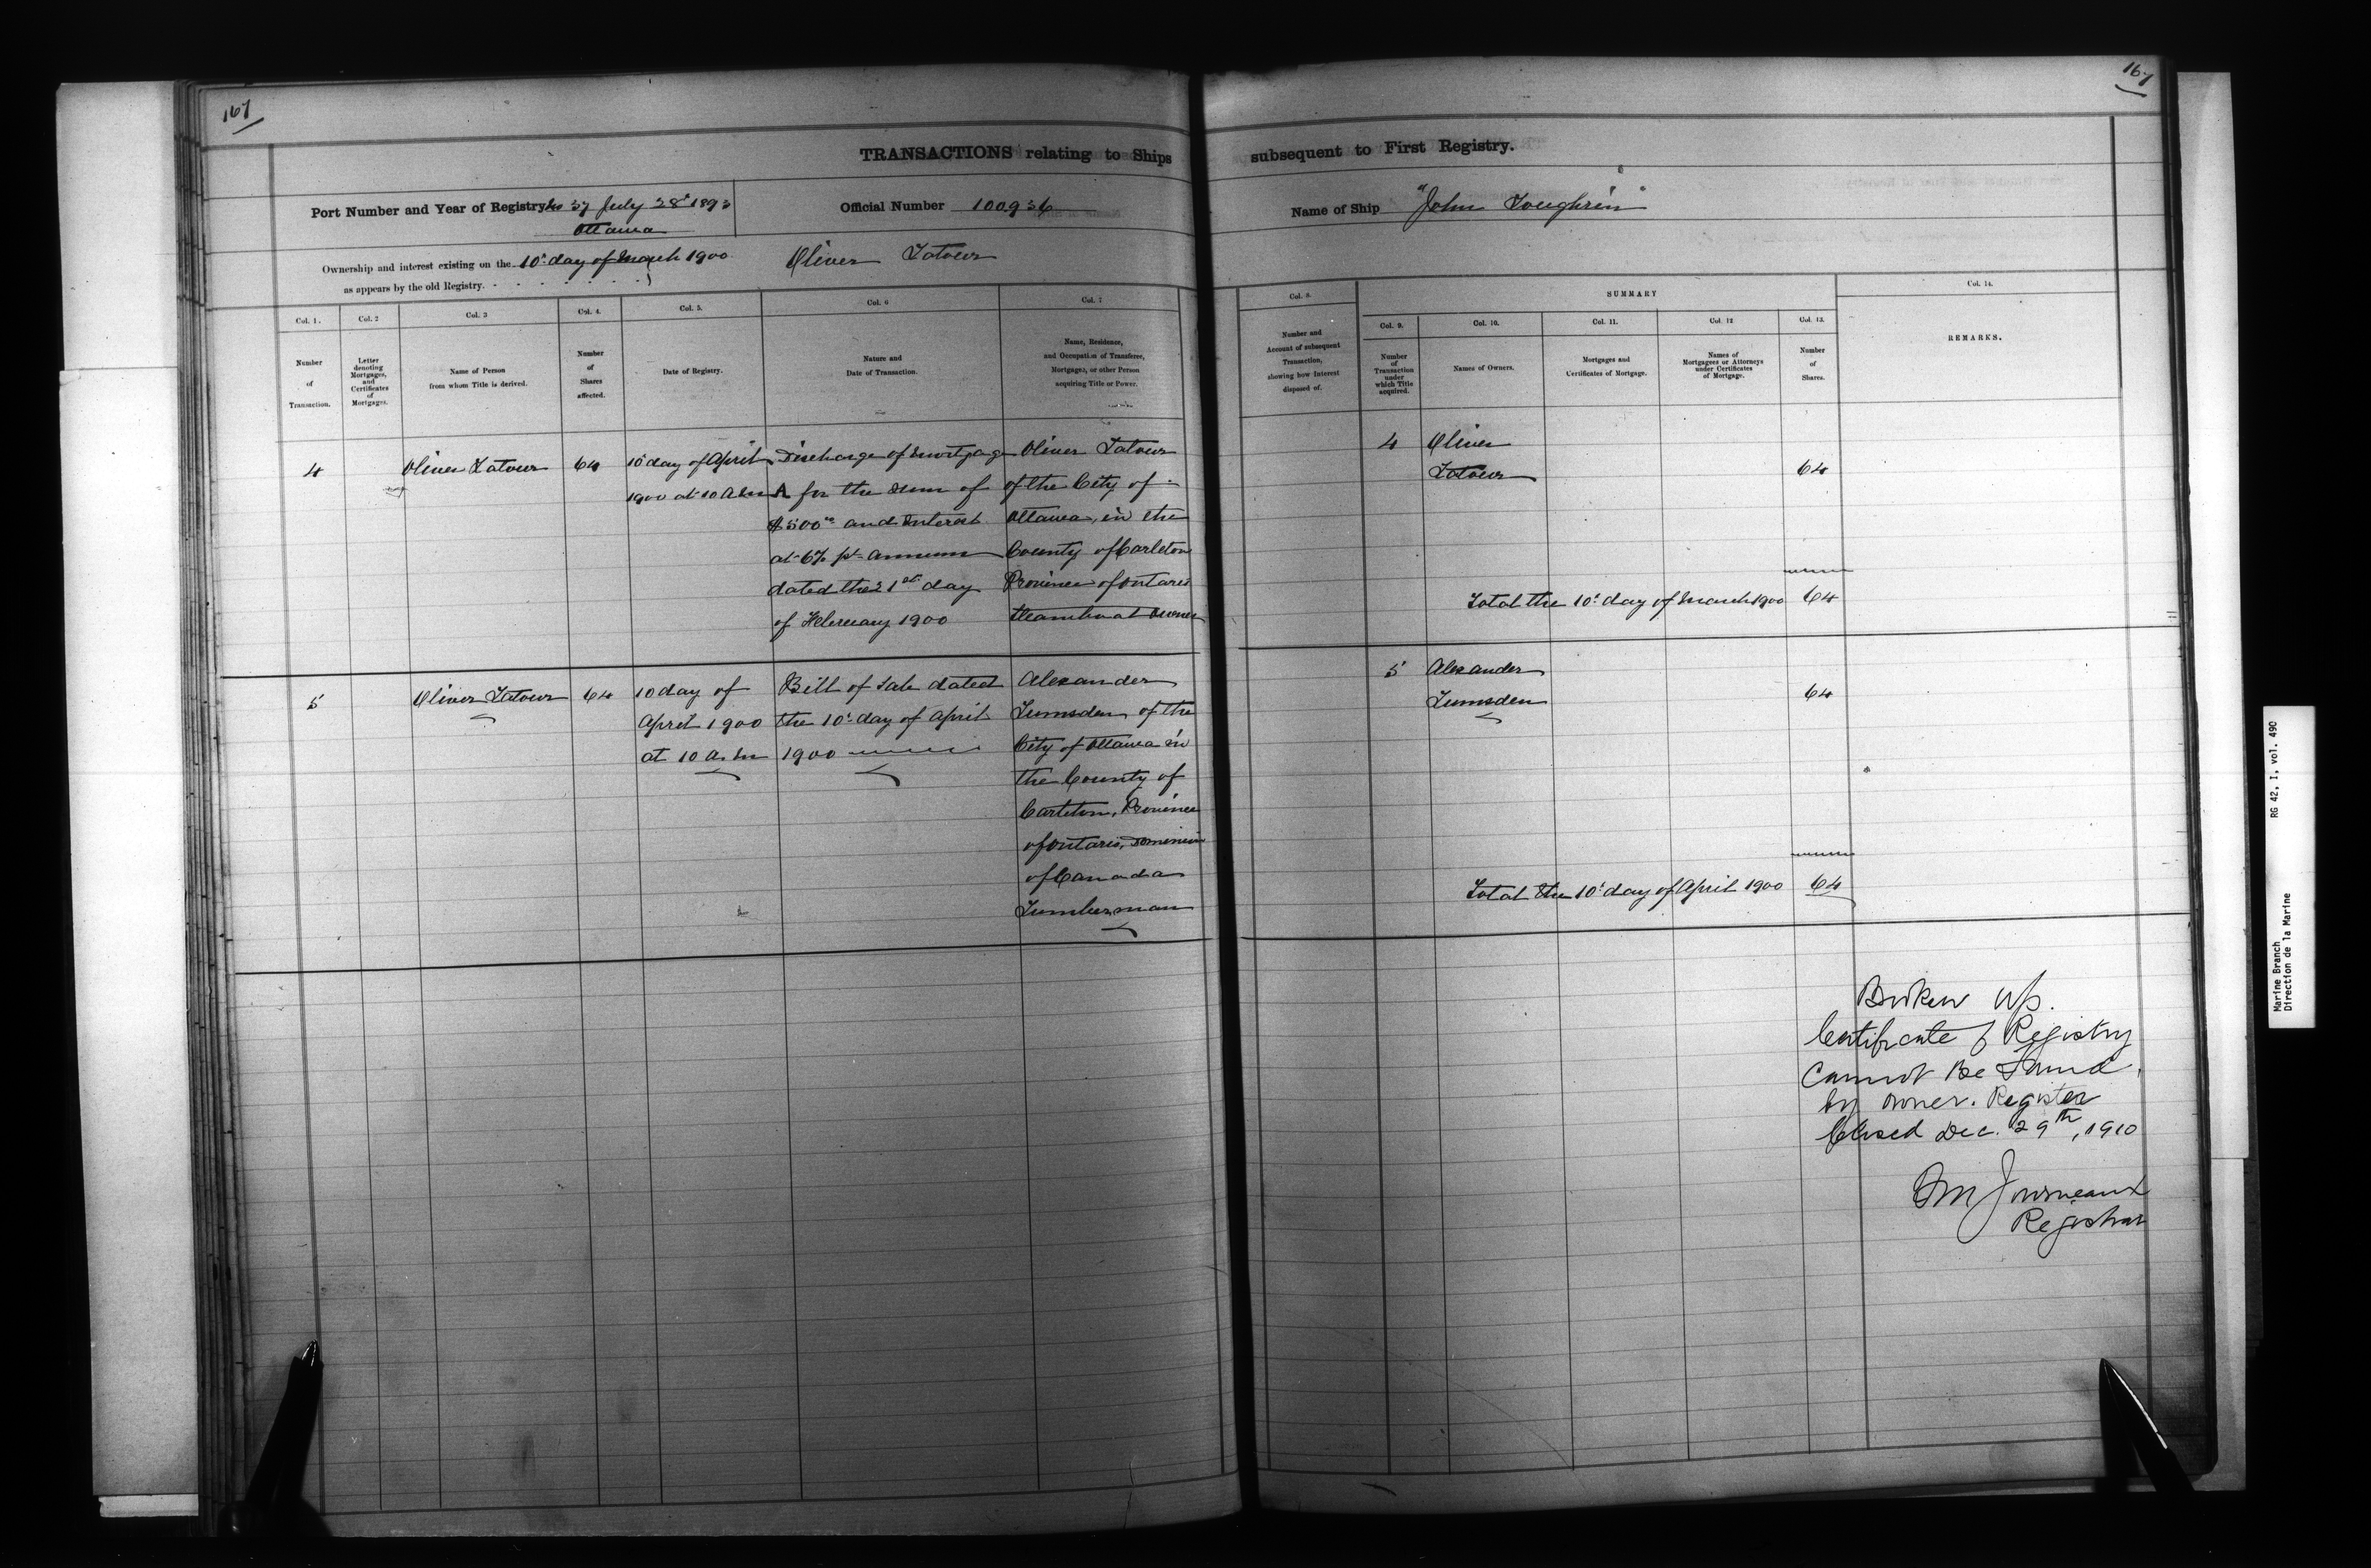 167
TRANSACTIONS relating to Ships
Port Number and Year of Registry No 37 July 28th 1893
Ottawa
Official Number 100,936
Ownership and interest existing on the 10th day of March 1900
as appears by the old Registry.
Oliver Latour
Col. 1.
Number
of
Transaction.
Col. 2
Letter
denoting
Mortgages,
and
Certificates
of
Mortgages.
Col. 3
Name of Person
from whom Title is derived.
Col. 4.
Number
of
Shares
affected.
Col. 5.
Date of Registry.
Col. 6
Nature and
Date of Transaction.
Col. 7
Name, Residence,
and Occupation of Transferee,
Mortgagee, or other Person
acquiring Title or Power.
4
Oliver Latour
64
10 day of April
1900 at 10 A.M
Discharge of Mortgage
A for the Sum of
$500.00 and Interest
at 6% pr annum
dated the 21st day
of February 1900
Oliver Latour
of the City of
Ottawa, in the
County of Carleton
Province of Ontario
Steamboat Owner
5
Oliver Latour
64
10 day of
April 1900
at 10 A.M
Bill of Sale dated
the 10th day of April
1900
Alexander
Lumsden, of the
City of Ottawa in
the County of
Carleton, Province
of Ontario, Dominion
of Canada
Lumberman
167
subsequent to First Registry.
Name of Ship "John Loughrin"
Col. 8.
Number and
Account of subsequent
Transaction,
showing how Interest
disposed of.
SUMMARY
Col. 9.
Number
of
Transaction
under
which Title
acquired.
Col. 10.
Names of Owners.
Col. 11.
Mortgages and
Certificates of Mortgage.
Col. 12
Names of
Mortgagees or Attorneys
under Certificates
of Mortgage.
Col. 13.
Number
of
Shares.
Col. 14.
REMARKS.
4
Oliver
Latour
64
Total the 10th day of March 1900 64
5
Alexander
Lumsden
64
Total the 10th day of April 1900 64
Broken up.
Certificate of Registry
Cannot Be Found
by owner. Register
Closed Dec. 29th, 1910
Registrar
Marine Branch
Direction de la Marine
RG 42, I, vol. 490